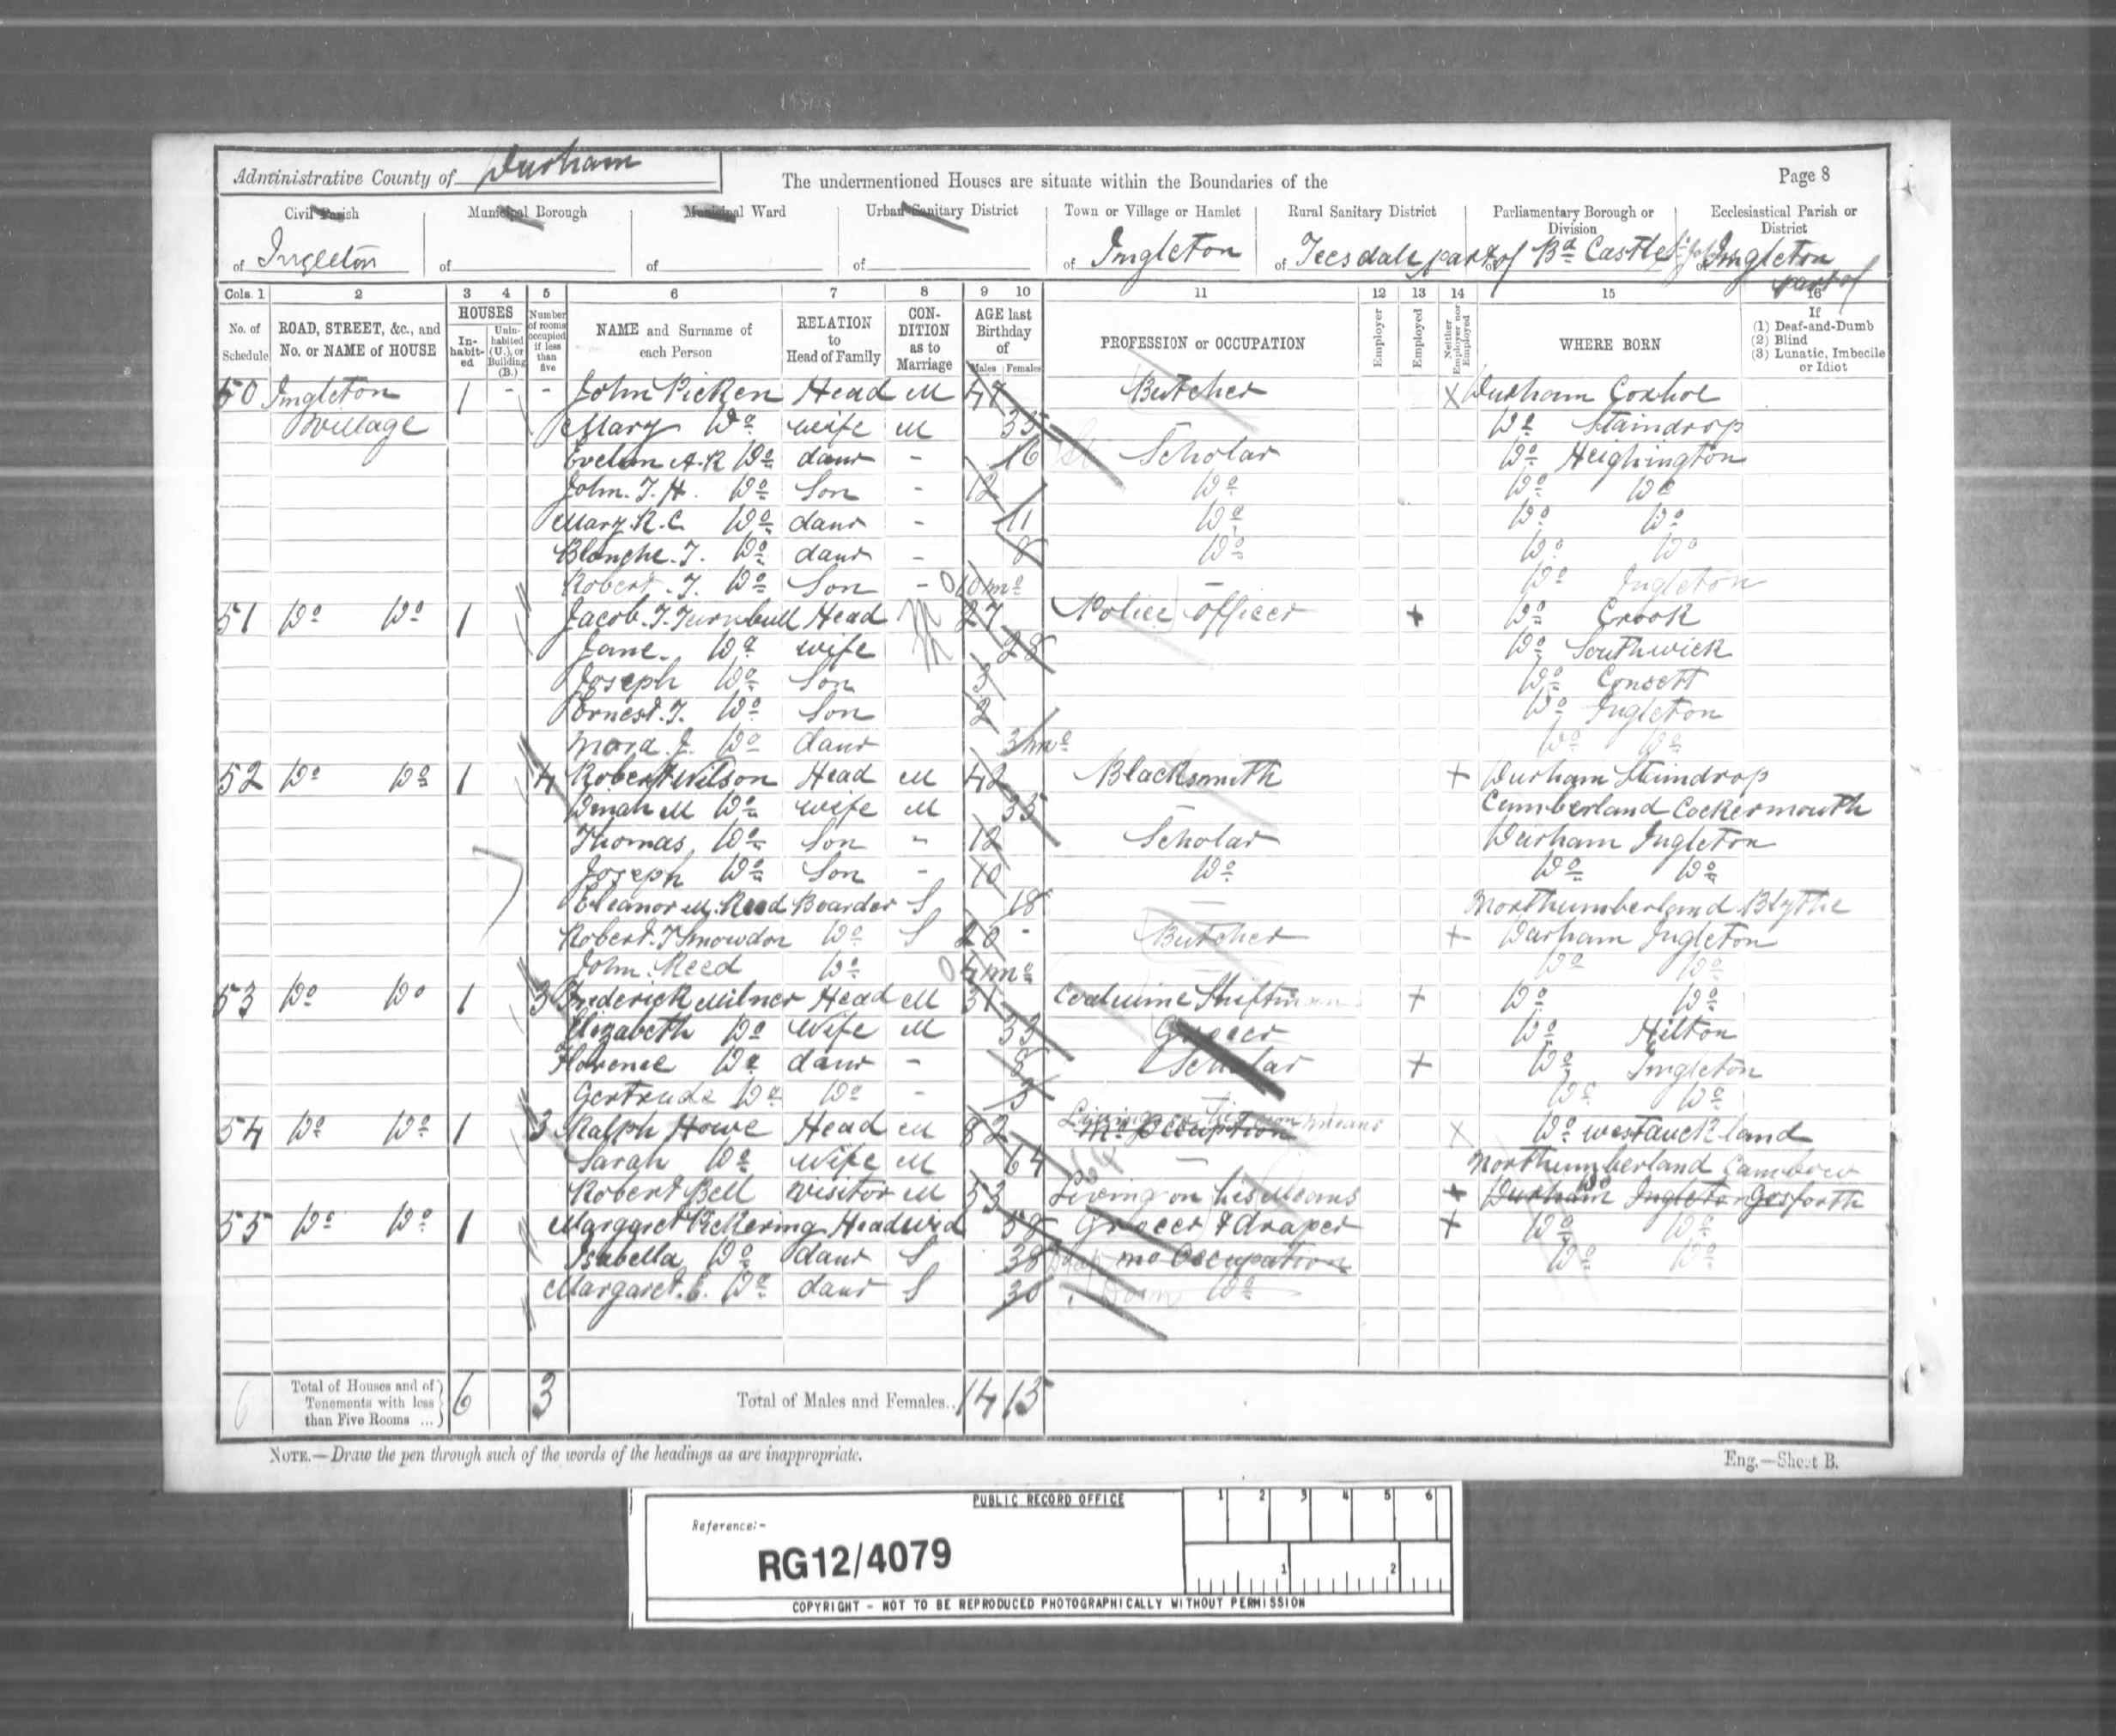 Administrative County of Durham
The undermentioned Houses are situate within the Boundaries of the
Page 8
Civil Parish
Municipal Borough
Municipal Ward
Urban Sanitary District
Town or Village or Hamlet
Rural Sanitary District
Parliamentary Borough or Division
Ecclesiastical Parish or District
of Ingleton
of
of
of
of Ingleton
of Teesdale part of
Bd Castle
Ingleton part of
Cols. 1 2 3 4 5 6 7 8 9 10 11 12 13 14 15 16
No. of Schedule
ROAD, STREET, &c., and No. or NAME of HOUSE
HOUSES
In-habit-ed
Unin-habited (U.), or Building (B.)
Number of rooms occupied if less than five
NAME and Surname of each Person
RELATION to Head of Family
CON-DITION as to Marriage
AGE last Birthday of
Males Females
PROFESSION or OCCUPATION
Employer
Employed
Neither Employer nor Employed
WHERE BORN
If
(1) Deaf-and-Dumb
(2) Blind
(3) Lunatic, Imbecile or Idiot
50 Ingleton 1 - - John Picken Head M 47 Butcher X Durham Coxhoe
Village Mary Do wife M 35 Do Staindrop
Evelyn A.R Do daur - 16 Scholar Do Heighington
John. T. H. Do Son - 12 Do Do Do
Mary. R. C. Do daur - 11 Do Do Do
Blanche. T. Do daur - 8 Do Do Do
Robert. T. Do Son - 10 mo - Do Ingleton
51 Do Do 1 Jacob. T. Turnbull Head M 27 Police officer + Do Crook
Jane. Do wife M 28 Do Southwick
Joseph Do Son 3 Do Consett
Ernest. T. Do Son 2 Do Ingleton
J. Do daur 3 mo Do Do
52 Do Do 1 4 Robert Wilson Head M 42 Blacksmith + Durham Staindrop
Dinah M Do wife M 35 - Cumberland Cockermouth
Thomas Do Son - 12 Scholar Durham Ingleton
Joseph Do Son - 10 Do Do Do
Eleanor M. Reed Boarder S 18 - Northumberland Blythe
Robert. T Snowdon Do S 20 - Butcher + Durham Ingleton
John. Reed Do 4 mo - Do Do
53 Do Do 1 3 Frederick Milner Head M 31 Coalmine Shiftman + Do Do
Elizabeth Do Wife M 33 Grocer Do Hilton
Florence Do daur - 8 Scholar + Do Ingleton
Gertrude Do Do - 3 Do Do
54 Do Do 1 3 Ralph Howe Head M 82 Living on his own Means X Do West Auckland
No Occuption
Sarah Do Wife M 64 - Northumberland
Robert Bell Visitor M 53 Living on his Means + Durham Ingleton Do Gosforth
55 Do Do 1 Margaret Pickering Head Wid 58 Grocer & draper + Do Do
Isabella Do daur S 38 no Occupation Do Do
Margaret. E. Do daur S 30 Do
Total of Houses and of Tenements with less than Five Rooms ... 6 3
Total of Males and Females.. 14 15
NOTE.—Draw the pen through such of the words of the headings as are inappropriate.
Eng.—Sheet B.
PUBLIC RECORD OFFICE
1 2 3 4 5 6
Reference:-
RG12/4079
1 2
COPYRIGHT - NOT TO BE REPRODUCED PHOTOGRAPHICALLY WITHOUT PERMISSION